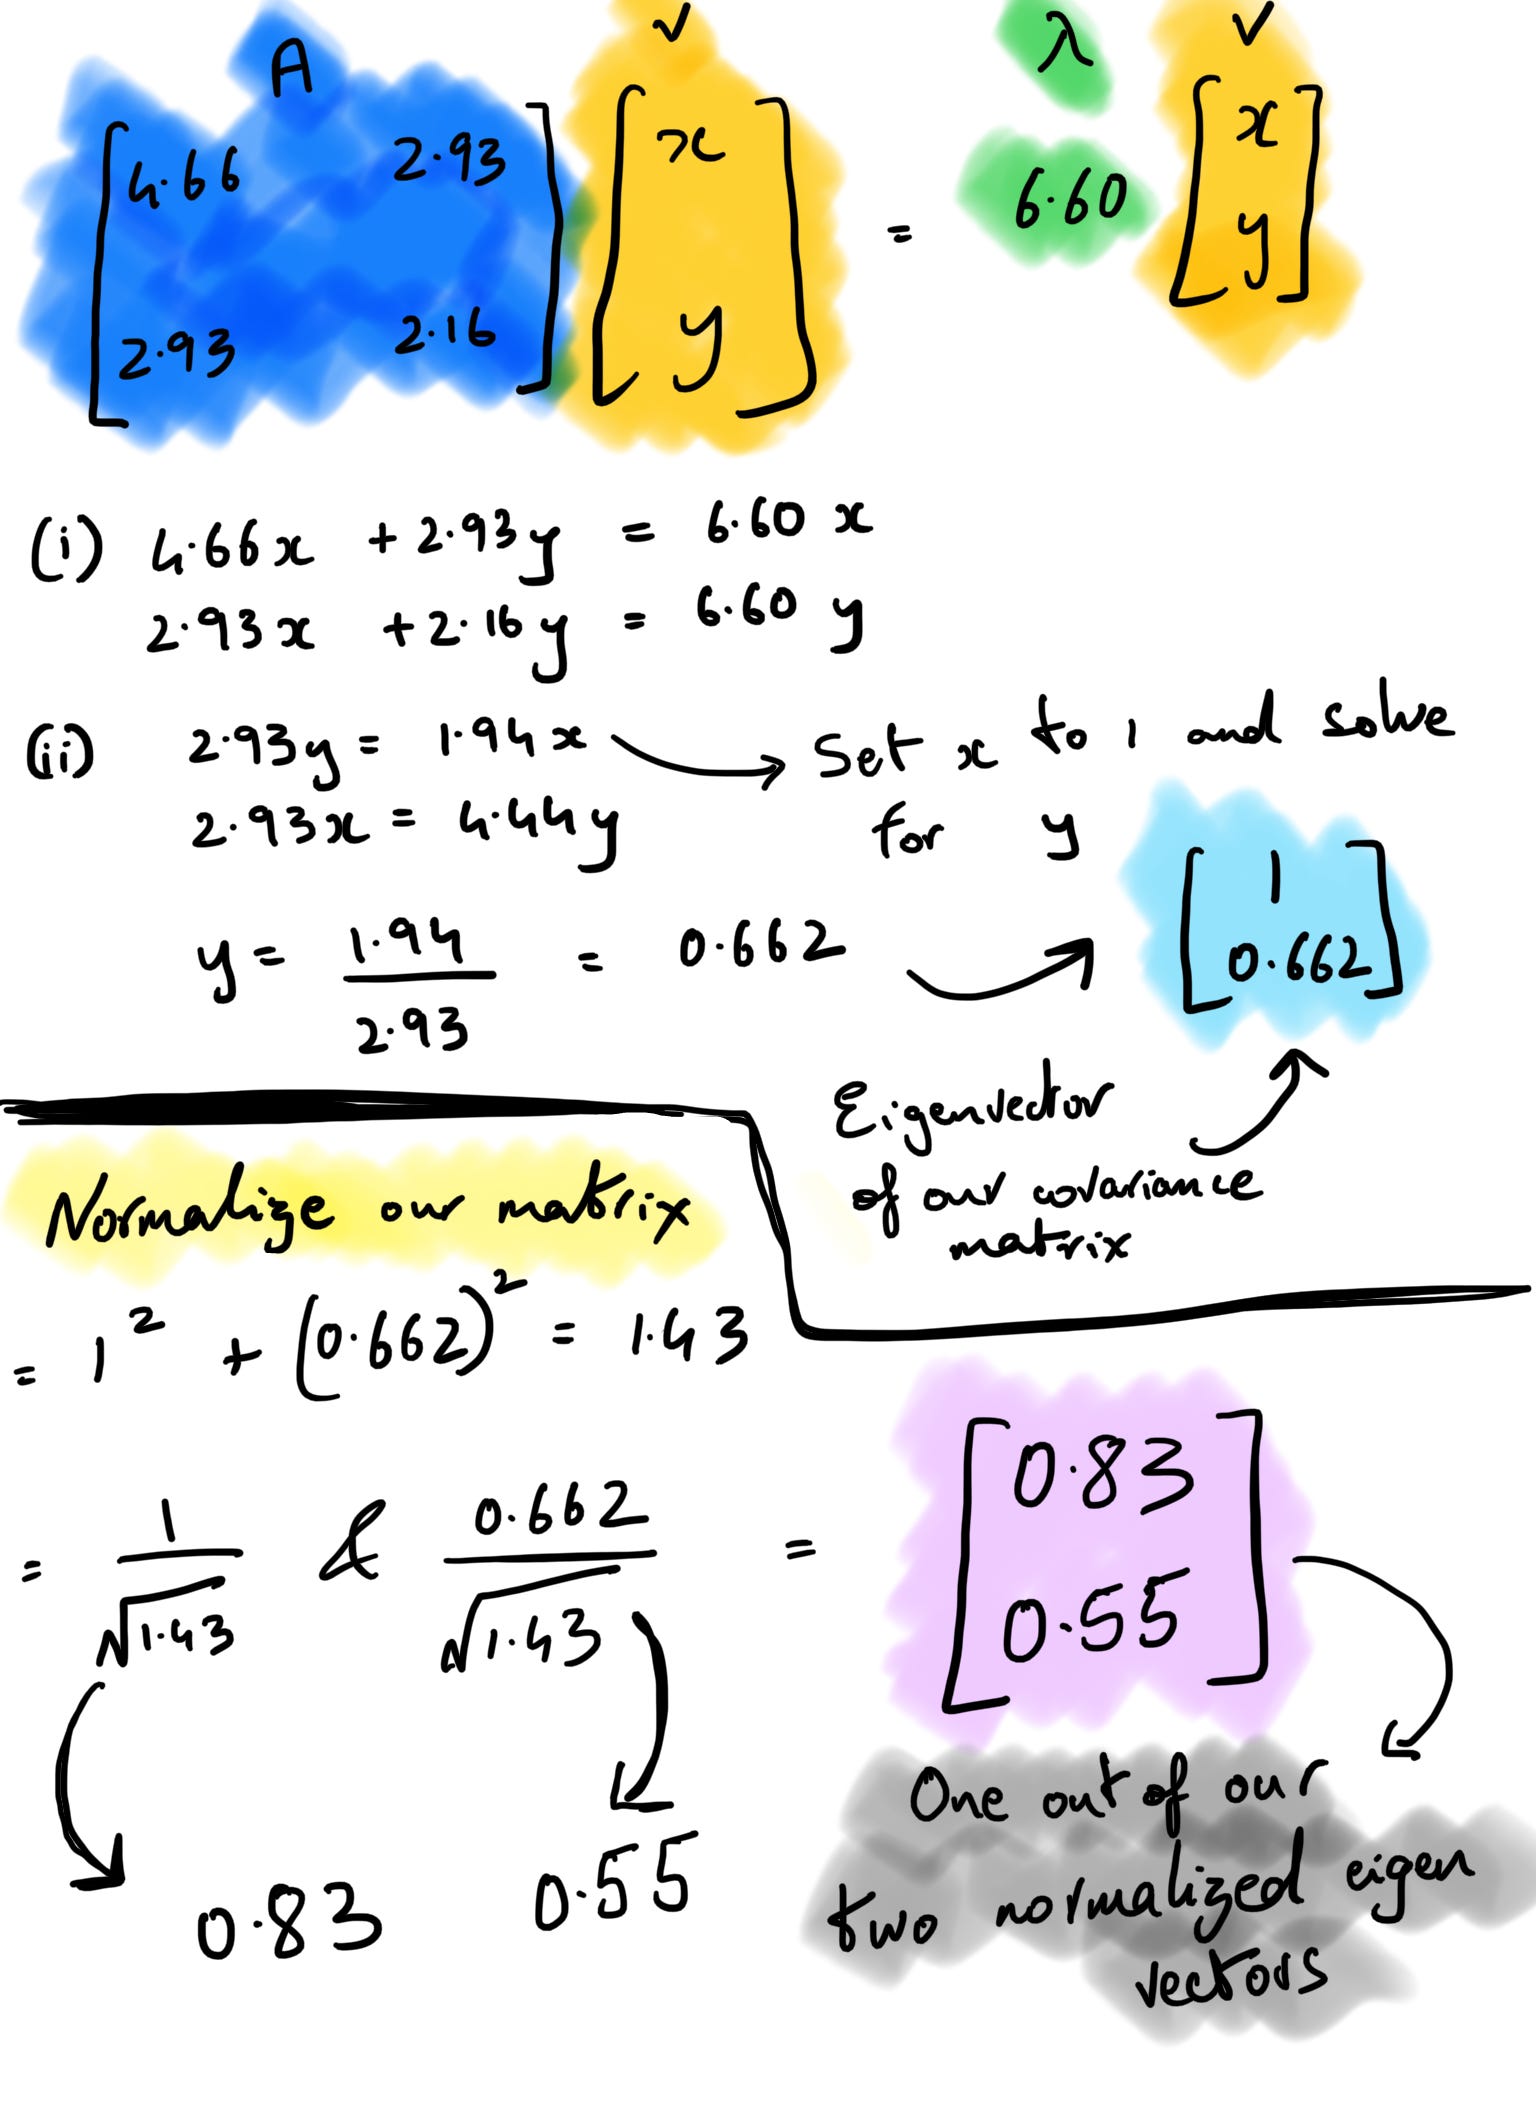 A v λ v
[4.66 2.93] [x] = 6.60 [x]
[2.93 2.16] [y] [y]
(i) 4.66x + 2.93y = 6.60 x
2.93x + 2.16y = 6.60 y
(ii) 2.93y = 1.94x → Set x to 1 and solve
2.93x = 4.44y for y
y = 1.94/2.93 = 0.662 → [1 0.662]
Eigenvector
of our covariance
matrix
Normalize our matrix
= 1² + (0.662)² = 1.43
= 1/√1.43 & 0.662/√1.43 = [0.83 0.55]
0.83 0.55
One out of our
two normalized eigen
vectors